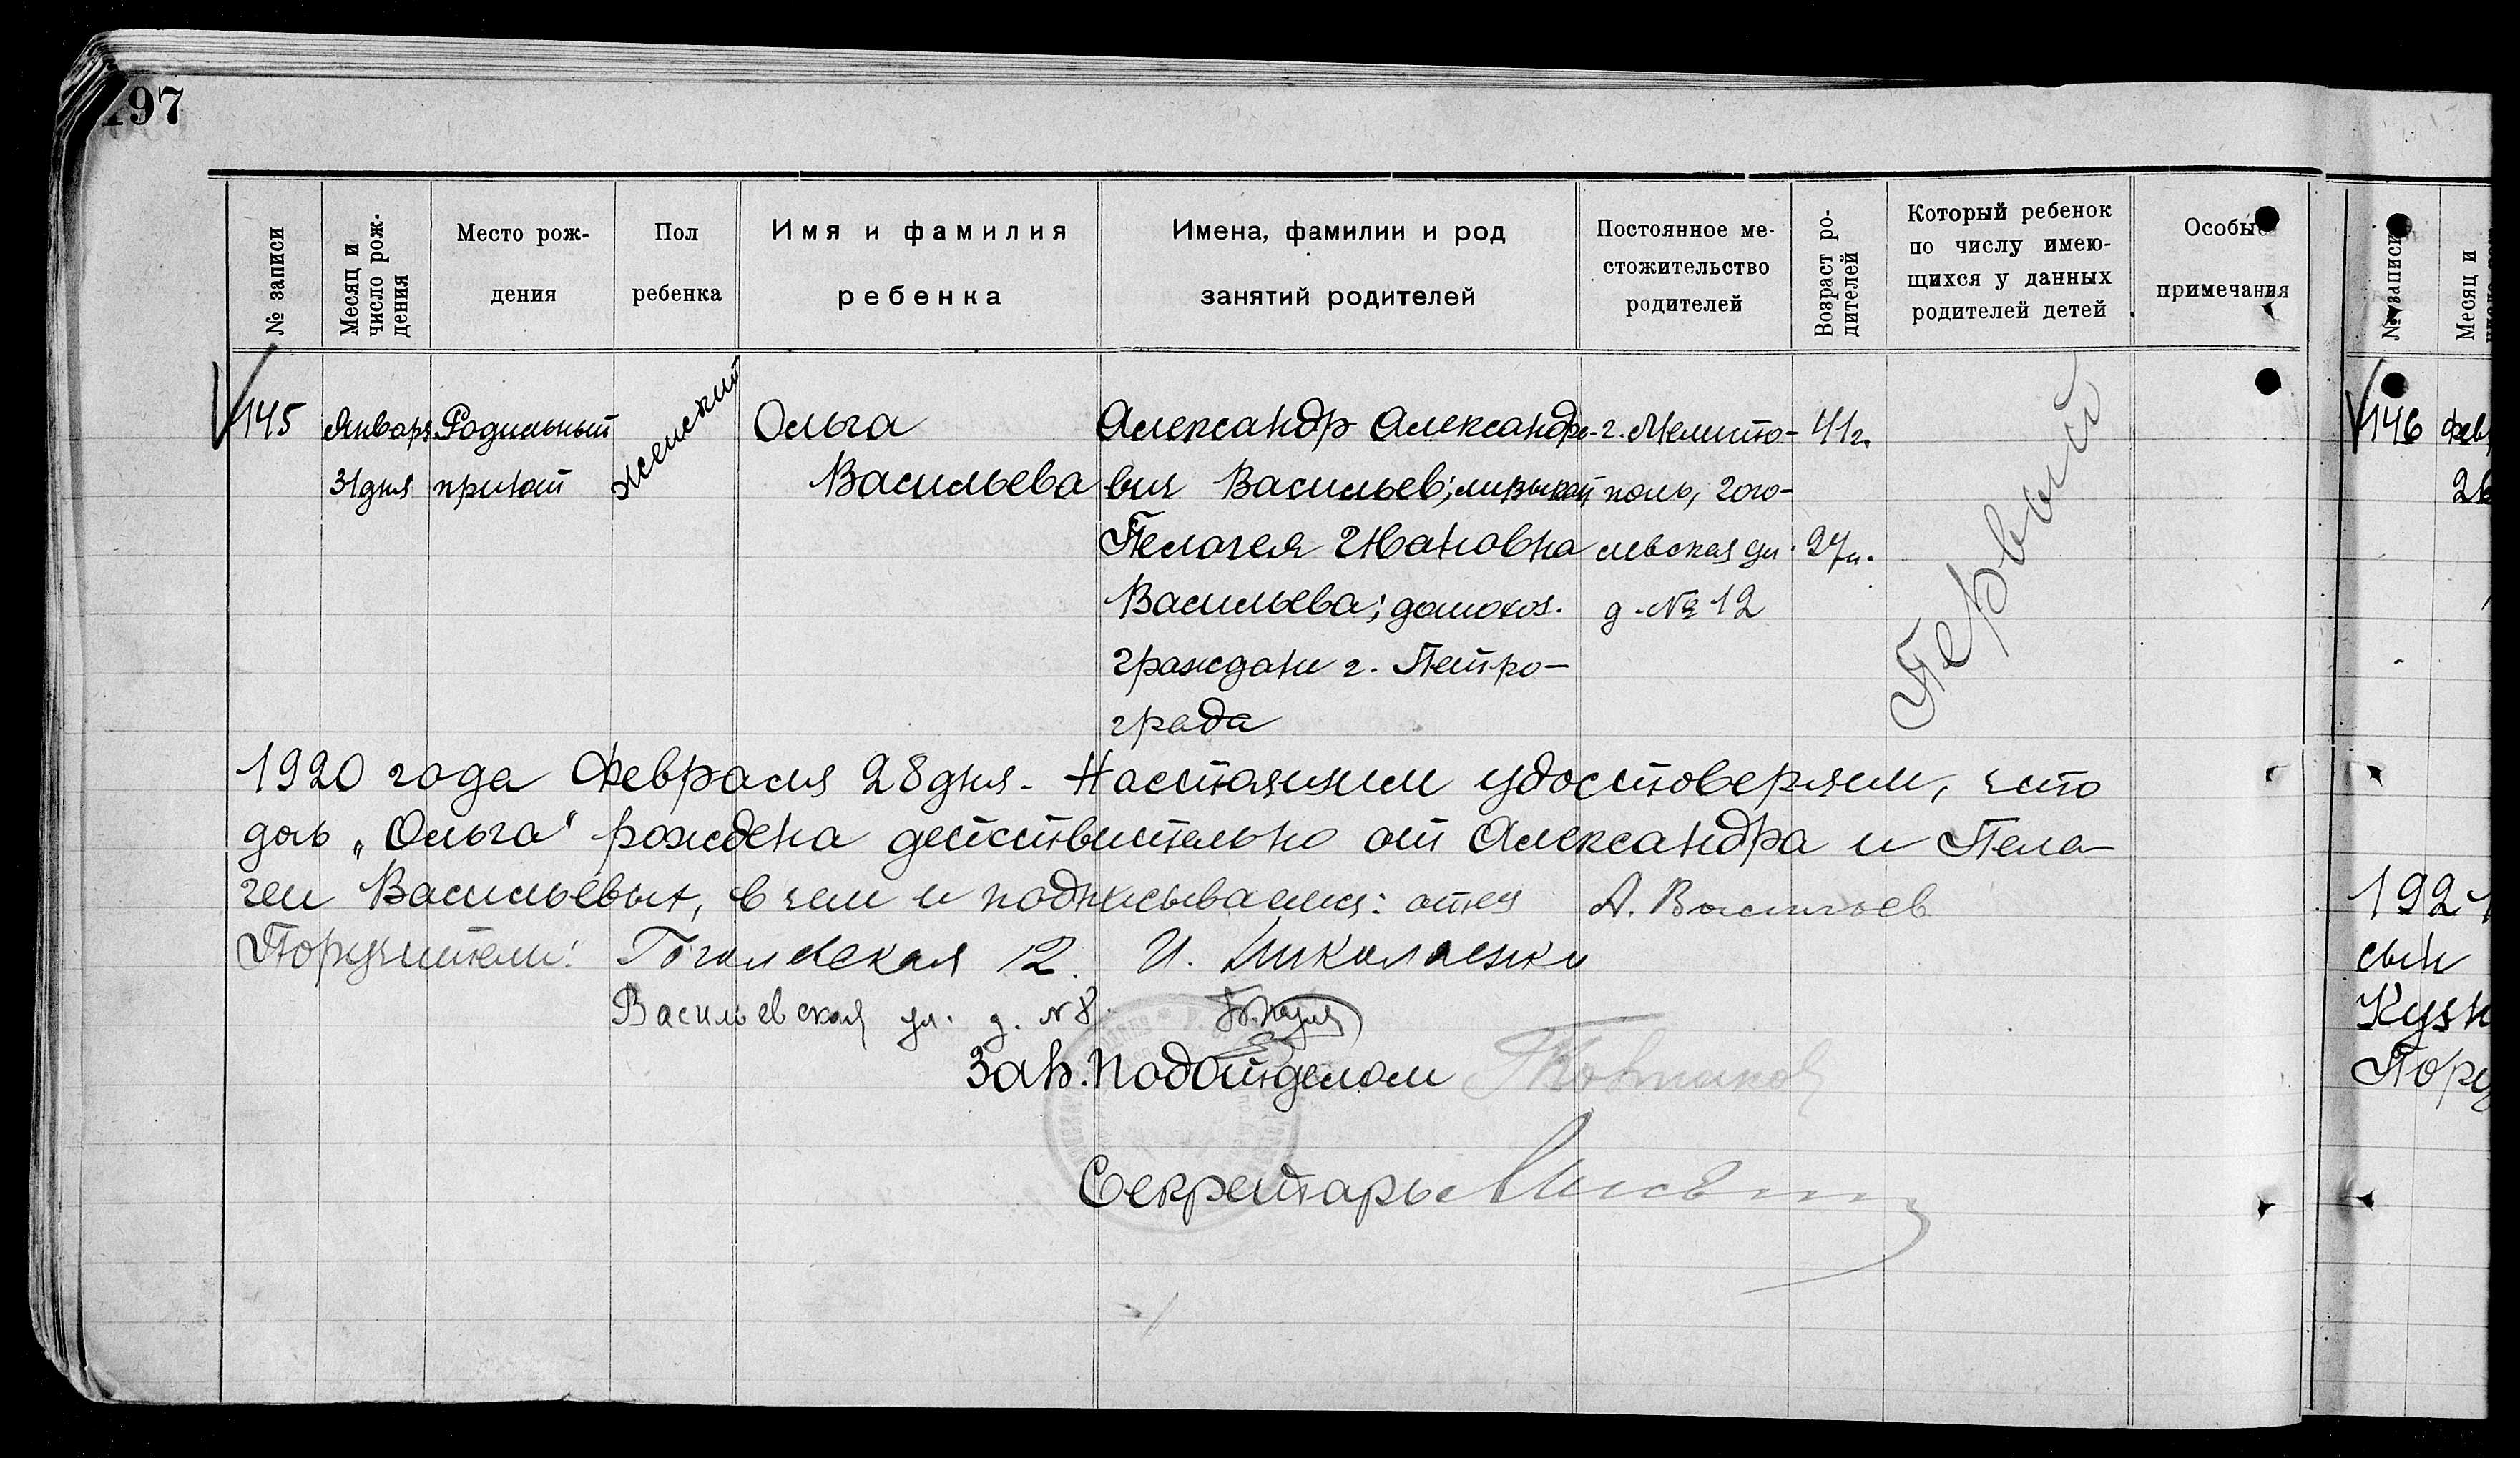 197
№ записи
Месяц и
число рож-
дения
Место рож-
дения
Пол
ребенка
Имя и фамилия
ребенка
Имена, фамилии и род
занятий родителей
Постоянное ме-
стожительство
родителей
Возраст ро-
дителей
Который ребенок
по числу имею-
щихся у данных
родителей детей
Особые
примечания
145
Января
31 дня
Родильный
приют
женский
Ольга
Васильева
Александр Александро-
вич Васильев;
Пелагея Ивановна
Васильева; домохоз.
граждане г. Петро-
града
г. Мелито-
поль, Гого-
левская ул.
д. № 12
41 г.
27 л.
Первый
1920 года Февраля 28 дня. Настоящим удостоверяем, что
дочь „Ольга" рождена действительно от Александра и Пела-
геи Васильевых, в чем и подписываемся: отец А. Васильев
Поручители: Гоголевская 12. И. Николаенко
Васильевская ул. д. № 8.
Зав. Подотделом
Секретарь
№ записи
Месяц и
146
Фев
2
192
сын
Куз
Пору